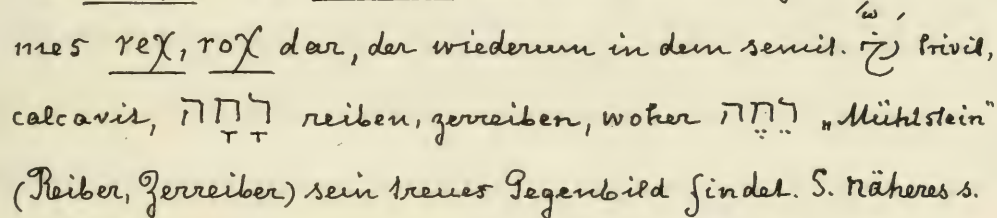 mes reχ, roχ dar, der wiederum in dem semit. رخّ trivit,
calcavit, רָחָה reiben, zerreiben, woher רֵחֶה „Mühlstein“
(Reiber, Zerreiber) sein treues Gegenbild findet. S. Näheres s.